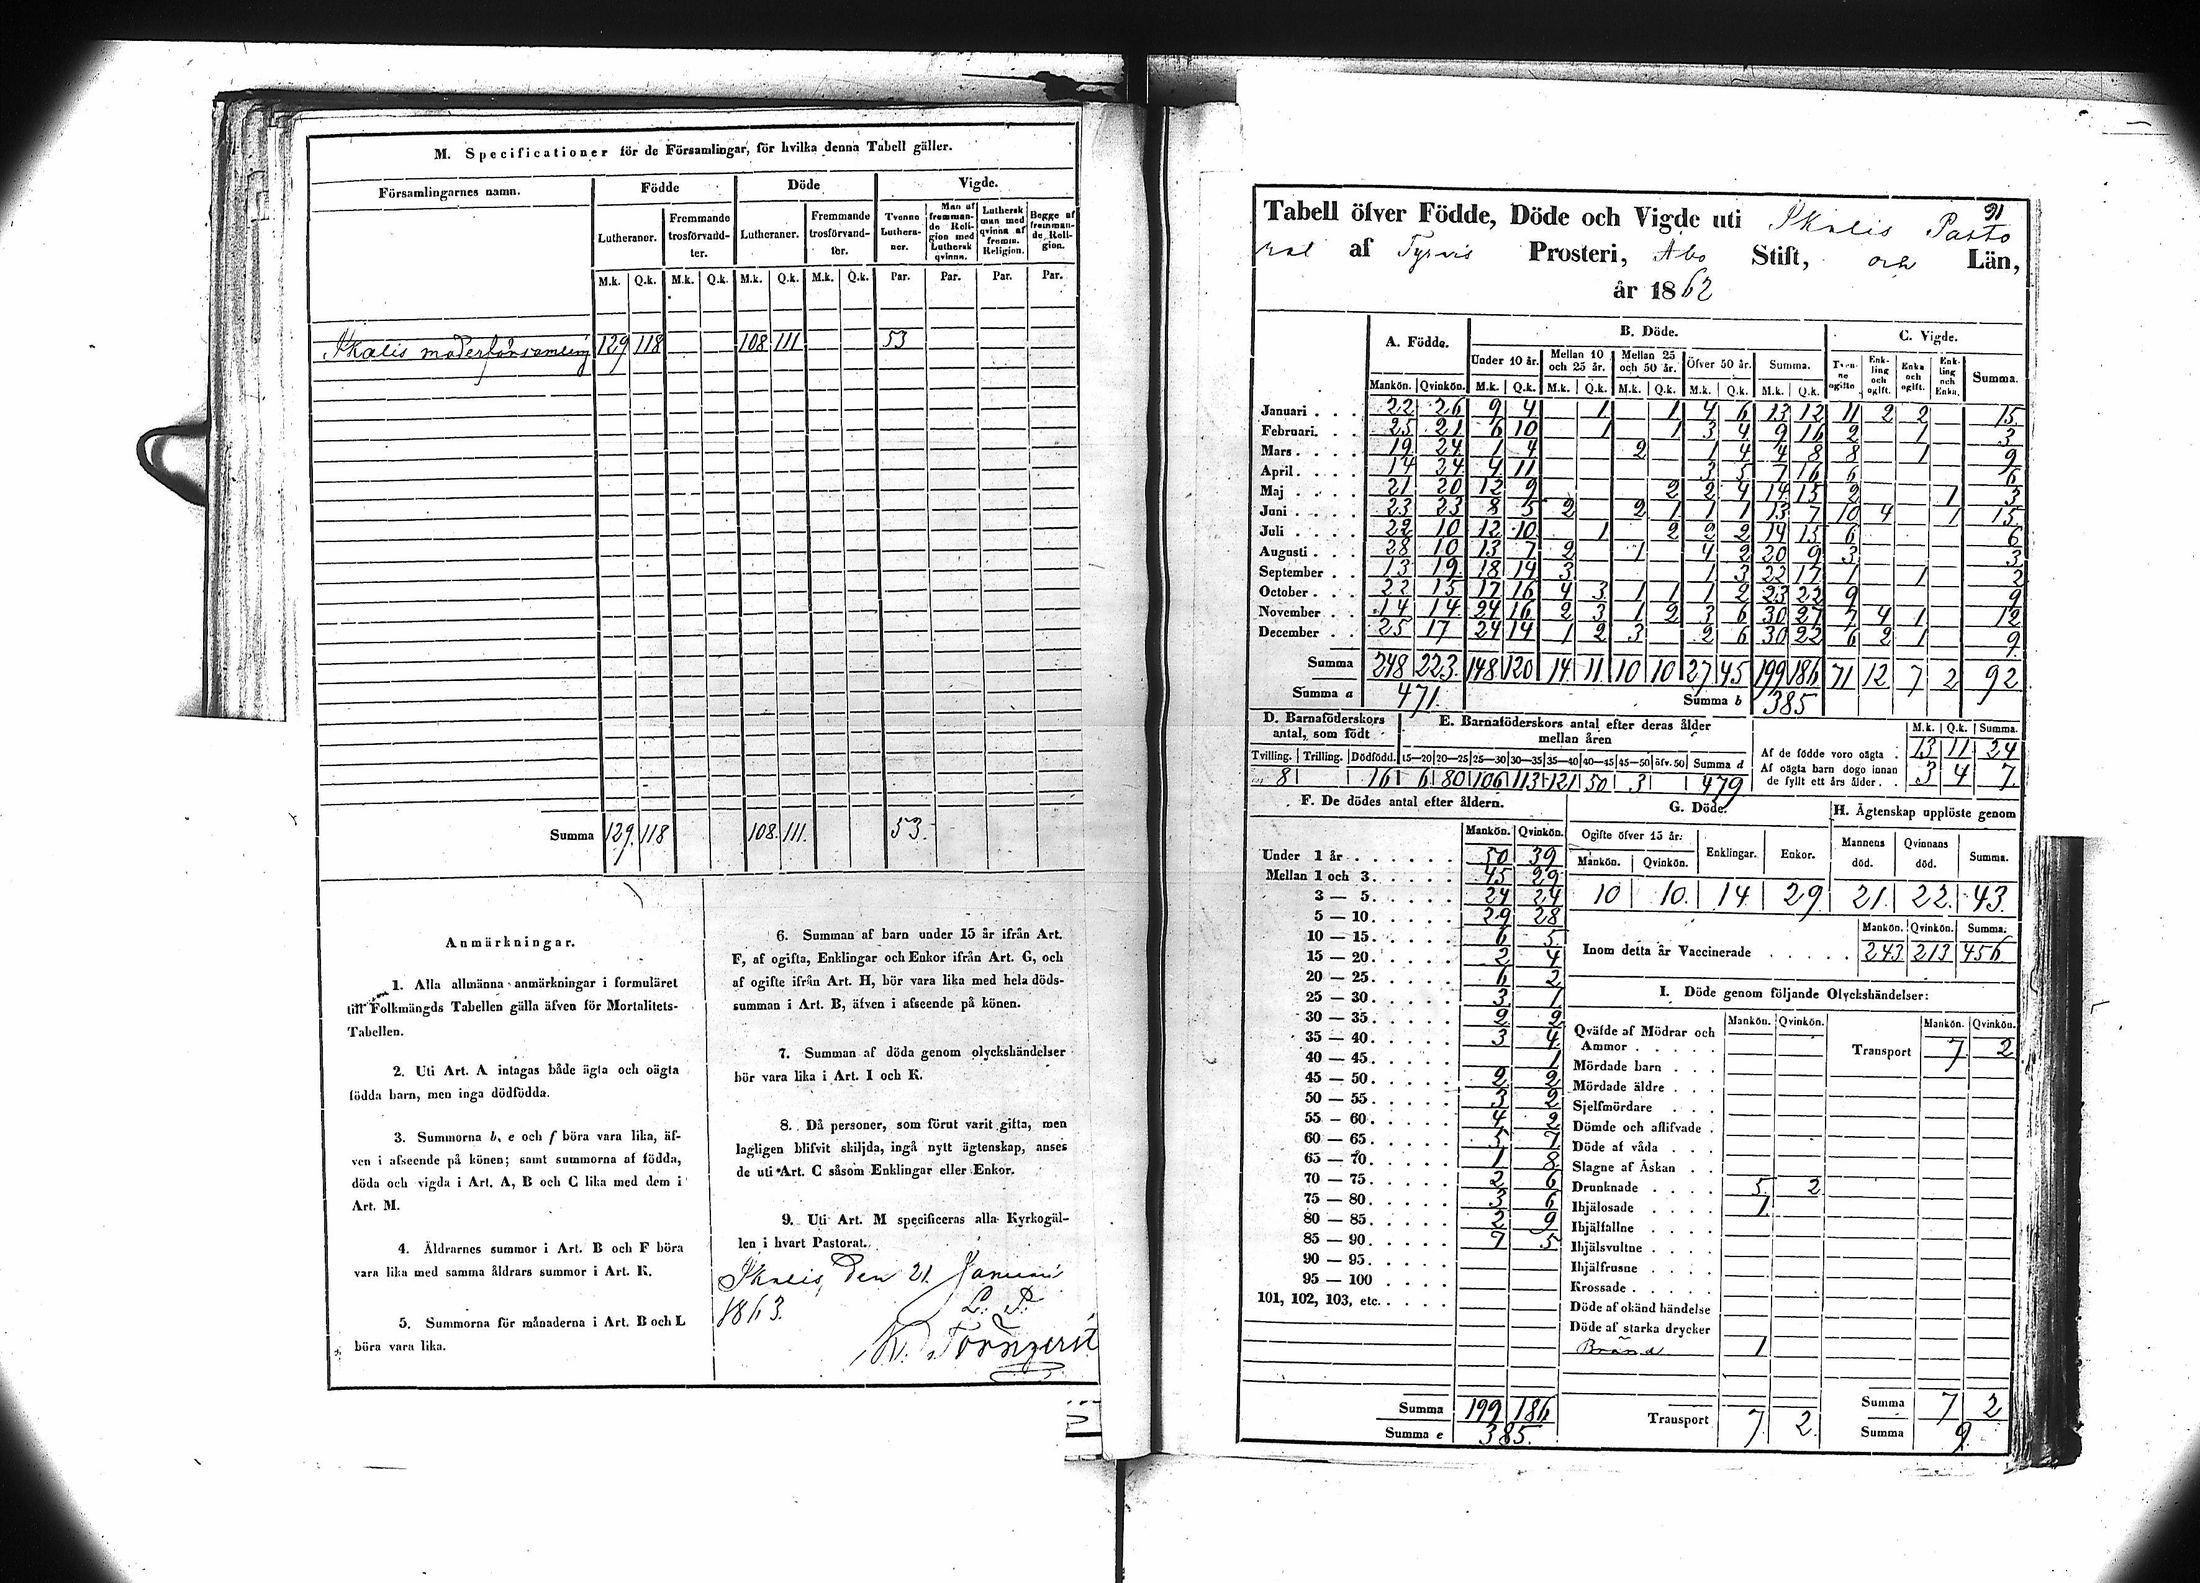 M. Specificationer för de Församlingar, för hvilka denna Tabell gäller.
Församlingarnes namn. Födde Döde Vigde.
Lutheraner. Fremmande trosförvandter. Lutheraner. Fremmande trosförvandter. Tvenne Lutheraner. Man af fremmande Religion med Luthersk qvinna. Luthersk man med qvinna af fremm. Religion. Begge af fremmande Religion.
M.k. Q.k. M.k. Q.k. M.k. Q.k. M.k. Q.k. Par. Par. Par. Par.
Ikalis moderförsamling 129 118 108 111 53
Summa 129. 118 108. 111. 53.
Anmärkningar.
1. Alla allmänna anmärkningar i formuläret
till Folkmängds Tabellen gälla äfven för Mortalitets-
Tabellen.
2. Uti Art. A intagas både ägta och oägta
födda barn, men inga dödfödda.
3. Summorna b, e och f böra vara lika, äf-
ven i afseende på könen; samt summorna af födda,
döda och vigda i Art. A, B och C lika med dem i
Art. M.
4. Äldrarnes summor i Art. B och F böra
vara lika med samma åldrars summor i Art. K.
5. Summorna för månaderna i Art. B och L
böra vara lika.
6. Summan af barn under 15 år ifrån Art.
F, af ogifta, Enklingar och Enkor ifrån Art. G, och
af ogifte ifrån Art. H, bör vara lika med hela döds-
summan i Art. B, äfven i afseende på könen.
7. Summan af döda genom olyckshändelser
bör vara lika i Art. I och K.
8. Då personer, som förut varit gifta, men
lagligen blifvit skiljda, ingå nytt ägtenskap, anses
de uti Art. C såsom Enklingar eller Enkor.
9. Uti Art. M specificeras alla Kyrkogäl-
len i hvart Pastorat.
Ikalis, den 21 Januari
1863.
91
Tabell öfver Födde, Döde och Vigde uti Ikalis Pasto
rat af Tyrvis Prosteri, Åbo Stift, och Län,
år 1862
A. Födde. B. Döde. C. Vigde.
Under 10 år. Mellan 10 och 25 år. Mellan 25 och 50 år. Öfver 50 år. Summa. Tvenne ogifte Enkling och ogift. Enka och ogift. Enkling och Enka. Summa.
Mankön. Qvinkön. M.k. Q.k. M.k. Q.k. M.k. Q.k. M.k. Q.k. M.k. Q.k.
Januari 22 26 9 4 1 1 4 6 13 12 11 2 2 15
Februari. 25 21 6 10 1 1 3 4 9 16 2 1 3
Mars 19 24 1 4 2 1 4 4 8 8 1 9
April 14 24 4 11 3 5 7 16 6 6
Maj 21 20 12 9 2 2 4 14 15 2 1 3
Juni 23 23 8 5 2 2 1 1 1 13 7 10 4 1 15
Juli 22 10 12 10 1 2 2 2 14 15 6 6
Augusti 28 10 13 7 2 1 4 2 20 9 3 3
September 13 19 18 14 3 1 3 22 17 1 1 2
October 22 15 17 16 4 3 1 1 1 2 23 22 9 9
November 14 14 24 16 2 3 1 2 3 6 30 27 7 4 1 12
December 25 17 24 14 1 2 3 2 6 30 22 6 2 1 9
Summa 248 223. 148 120 14 11 10 10 27 45 199 186 71 12 7 2 92
Summa a 471. Summa b 385
D. Barnaföderskors antal, som födt
E. Barnaföderskors antal efter deras ålder mellan åren
Tvilling. Trilling. Dödfödd. 15—20 20—25 25—30 30—35 35—40 40—45 45—50 öfv. 50 Summa d
8 16 6 80 106 113 121 50 3 479
M.k. Q.k. Summa.
Af de födde voro oägta 13 11 24
Af oägta barn dogo innan
de fyllt ett års ålder. 3 4 7.
F. De dödes antal efter åldern.
Mankön. Qvinkön.
Under 1 år 50 39
Mellan 1 och 3. 45 29
3 — 5. 24 24
5 — 10. 29 28
10 — 15. 6 5
15 — 20. 2 4
20 — 25. 6 2
25 — 30. 3 1
30 — 35. 2 2
35 — 40. 3 4
40 — 45. 1
45 — 50. 2 2
50 — 55. 3 2
55 — 60. 4 2
60 — 65. 5 7
65 — 70. 1 8
70 — 75. 2 6
75 — 80. 3 6
80 — 85. 2 9
85 — 90. 7 5
90 — 95.
95 — 100
101, 102, 103, etc.
Summa 199 186
Summa e 385.
G. Döde.
Ogifte öfver 15 år: Enklingar. Enkor.
Mankön. Qvinkön.
10 10. 14 29
H. Ägtenskap upplöste genom
Mannens död. Qvinnans död. Summa.
21. 22. 43.
Mankön. Qvinkön. Summa.
Inom detta år Vaccinerade 243 213 456
I. Döde genom följande Olyckshändelser:
Mankön. Qvinkön. Mankön. Qvinkön.
Qväfde af Mödrar och
Ammor Transport 7 2
Mördade barn
Mördade äldre
Sjelfmördare
Dömde och aflifvade
Döde af våda
Slagne af Åskan
Drunknade 5 2
Ihjälosade 1
Ihjälfallne
Ihjälsvultne
Ihjälfrusne
Krossade
Döde af okänd händelse
Döde af starka drycker
Bränd 1
Summa 7 2
Transport 7. 2. Summa 9.